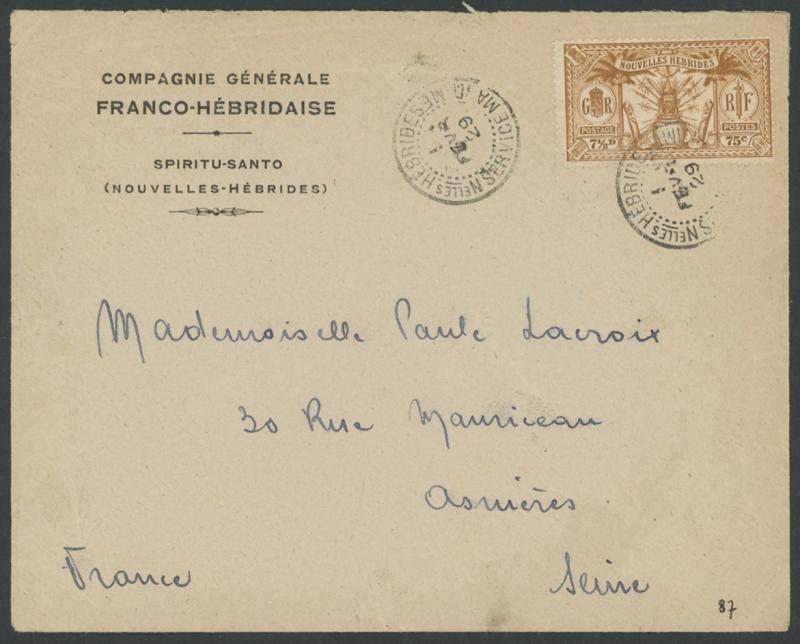 COMPAGNIE GÉNÉRALE
FRANCO-HÉBRIDAISE
SPIRITU-SANTO
(NOUVELLES-HÉBRIDES)
NELLES HÉBRIDES
29
NOUVELLES HEBRIDES
G R
R F
POSTAGE
POSTES
7½D
75c
NELLES HÉBRIDES
29
Mademoiselle Paule Lacroix
30 Rue Mauriceau
Asnières
France
Seine
87